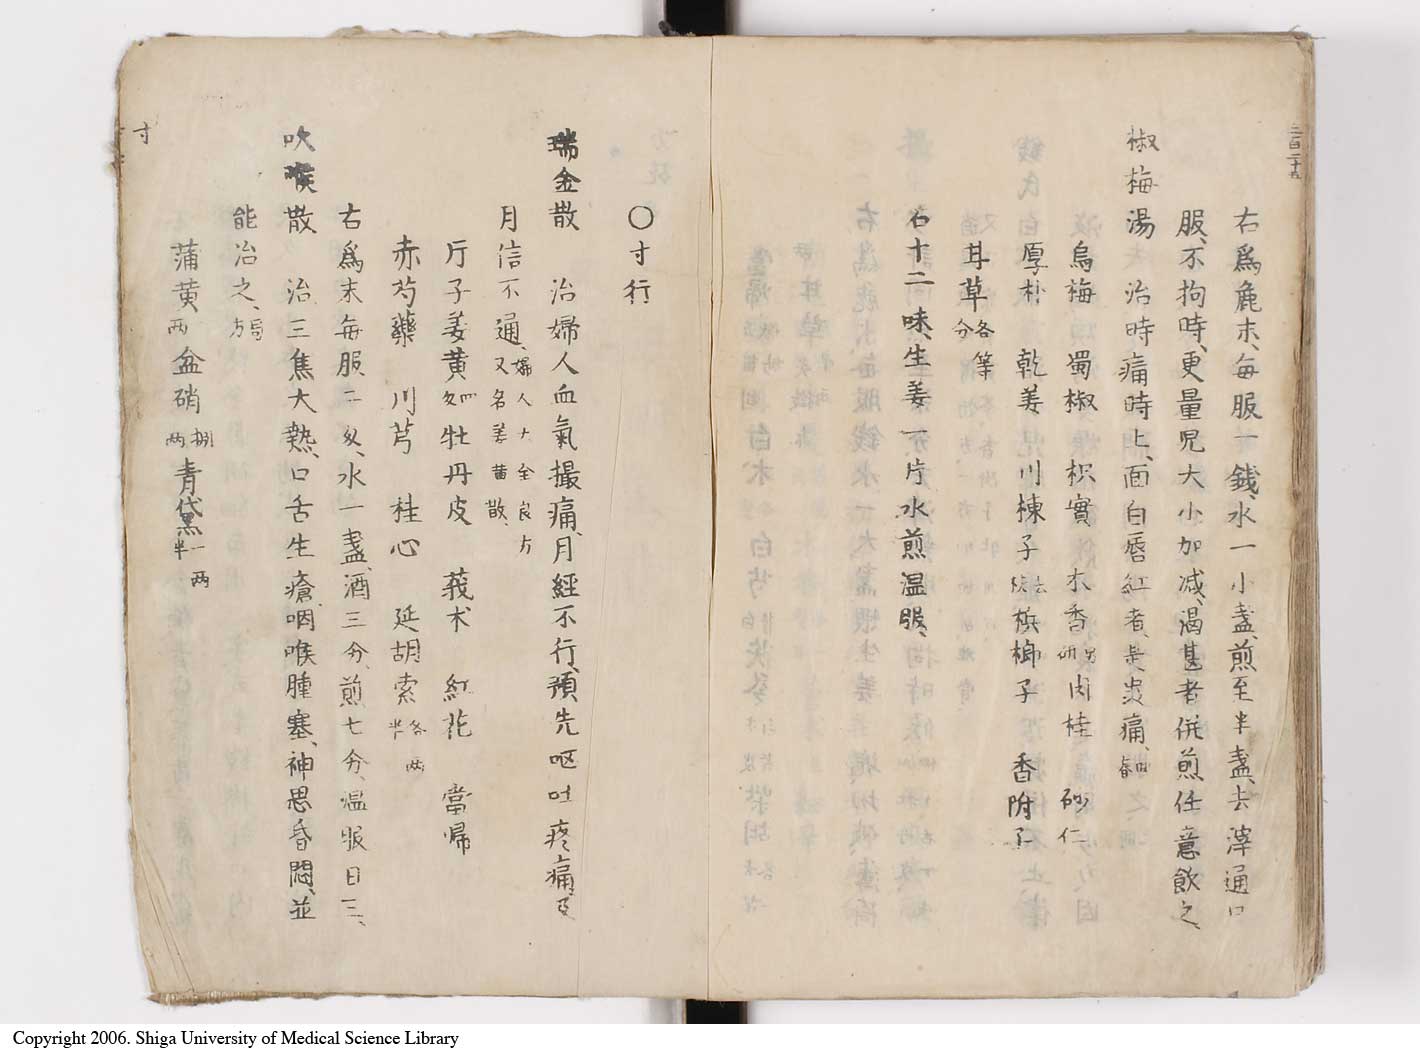 三百二十五
右為麁末、每服一錢、水一小盞、煎至半盞、去滓通口
服、不拘時、更量児大小加减、渴甚者併煎任意飲之、
椒梅湯 治時痛時止、面白唇紅者、是䖝痛、
烏梅 蜀椒 枳實 木香另研 肉桂 砂仁
厚朴 乾姜 川楝子去核 檳榔子 香附子
耳草各等分
右十二味、生姜一片水煎温服、
〇寸行
瑞金散 治婦人血氣撮痛、月經不行、預先呕吐疼痛、及
月信不通、婦人大全良方又名姜黄散、
片子姜黄四匁 牡丹皮 莪朮 紅花 當帰
赤芍藥 川芎 桂心 延胡索各半両
右為末每服二匁、水一盞、酒三分、煎七分、温服日三、
吹喉散 治三焦大熱、口舌生瘡、咽喉腫塞、神思昏悶、並
能治之、局方
蒲黄両 盆硝捌両 青黛一両半
寸
Copyright 2006. Shiga University of Medical Science Library